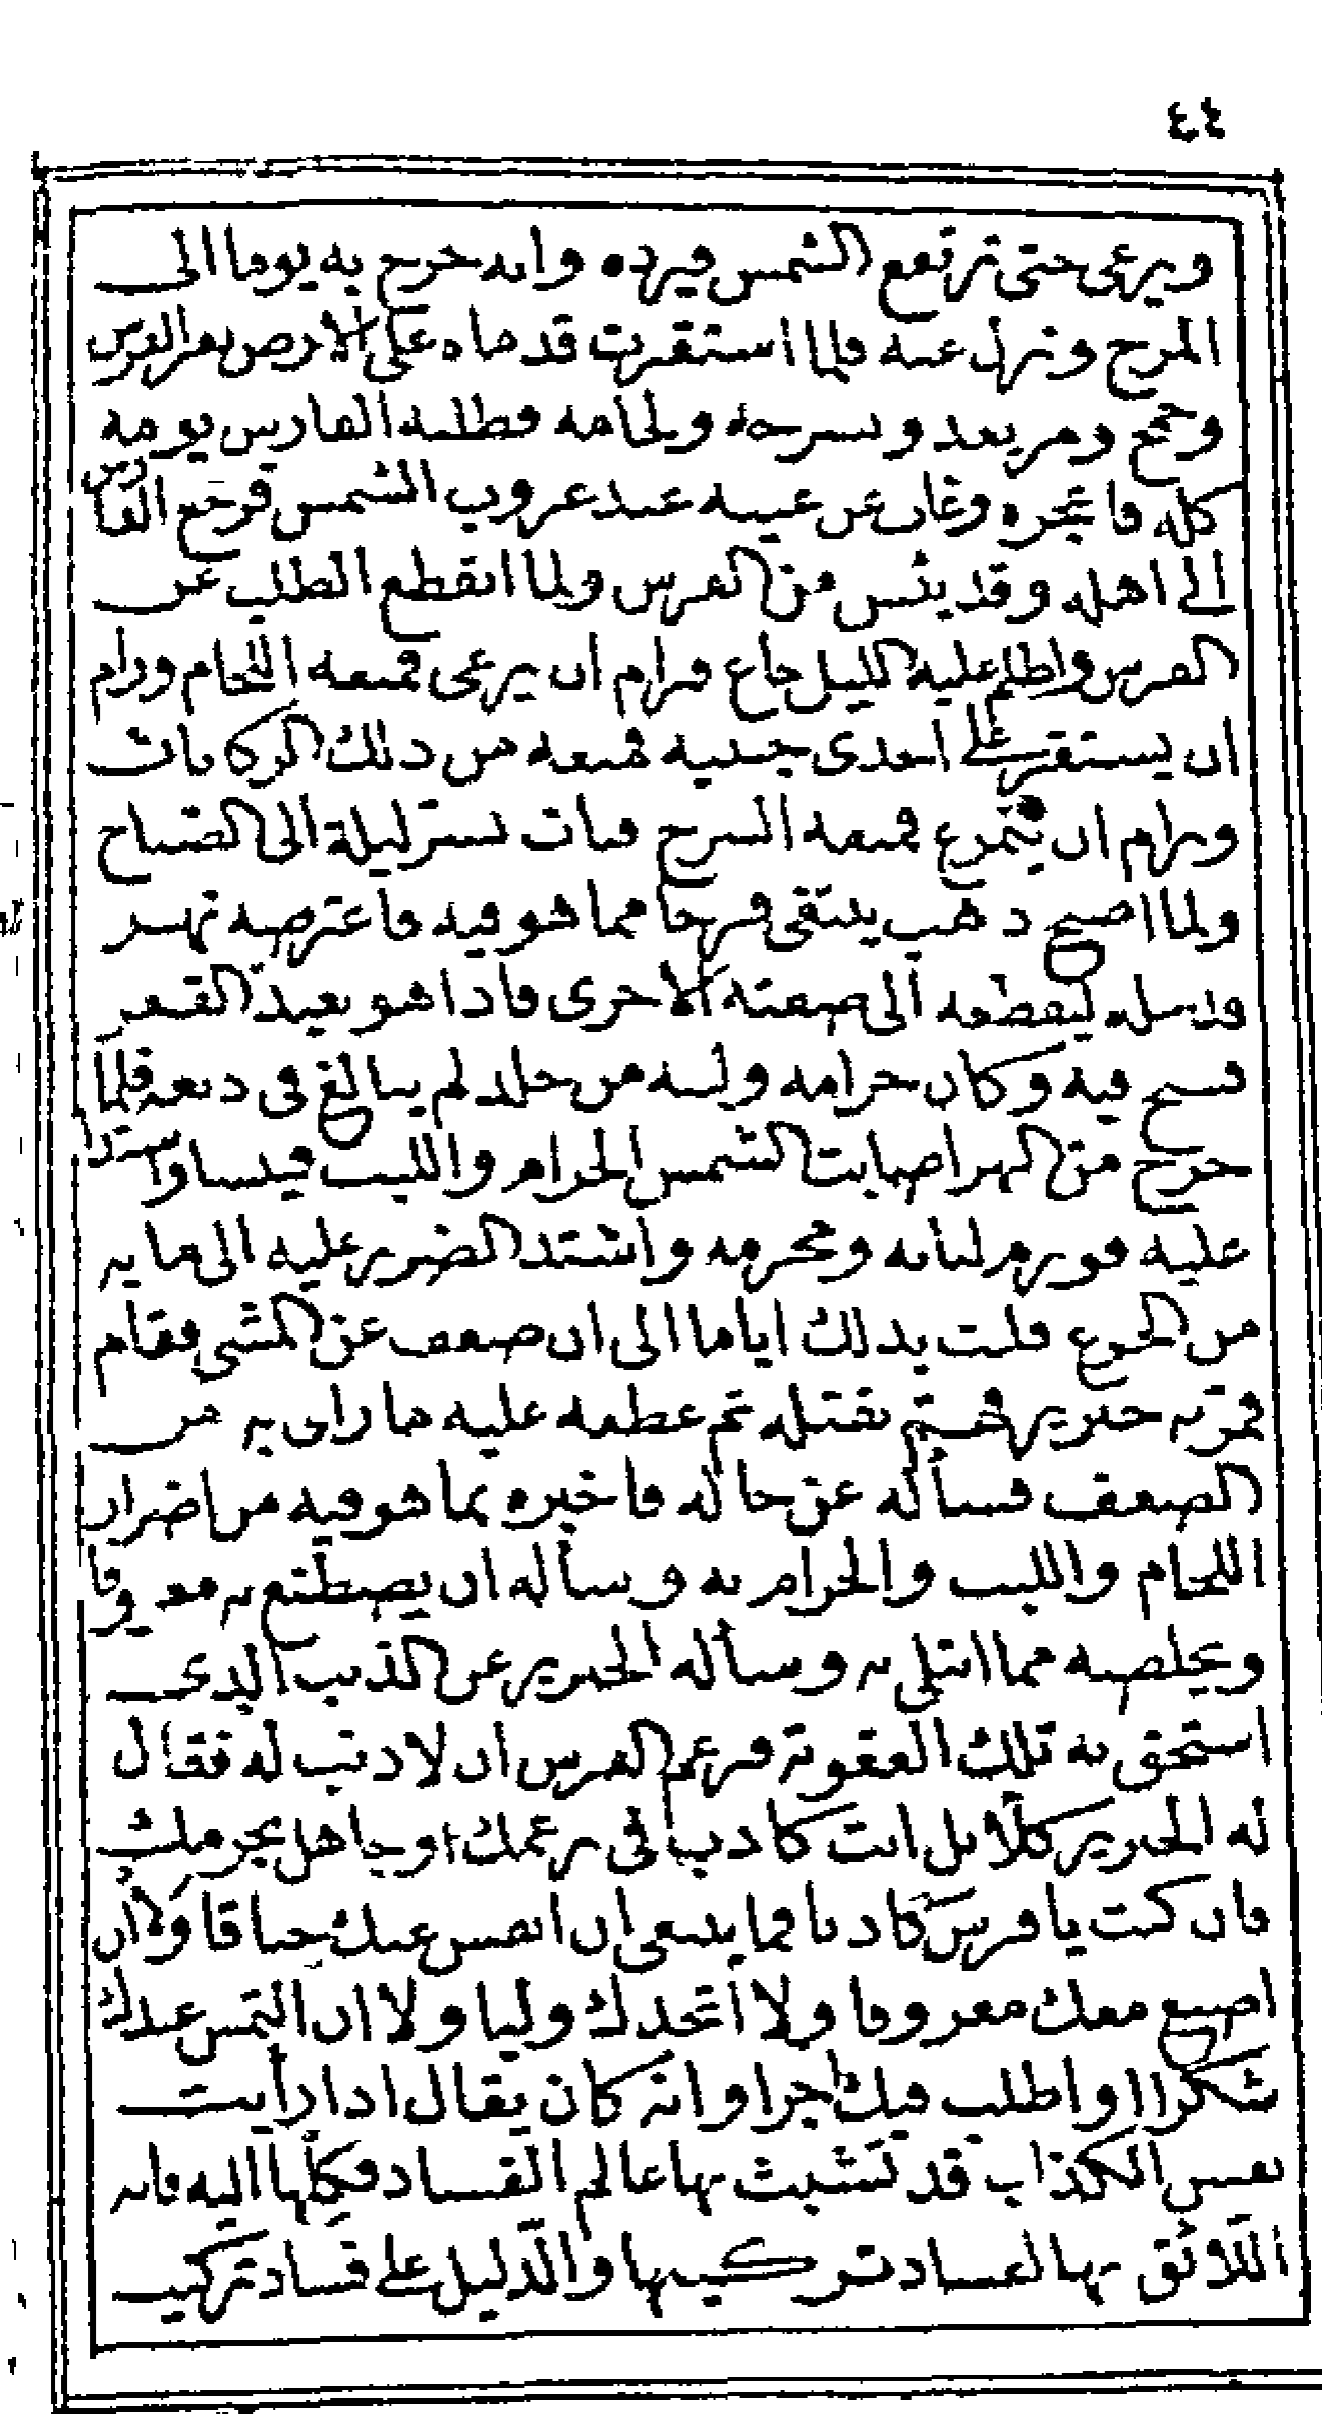 ٤٤
ويرعى حتى ترتفع الشمس فيرده وانه خرج به يوما الى
المرج ونزل عنه فلما استقرت قدماه على الارض نفر الفرس
وجمح ومر يعد وبسرجه ولجامه فطلبه الفارس يومه
كله فاعجزه وغاب عن عينيه عند غروب الشمس فرجع الفارس
الى اهله وقد يئس من الفرس ولما انقطع الطلب عن
الفرس واظلم عليه الليل جاع فرام ان يرعى فمنعه اللجام ورام
ان يستقر على احدى جنبيه فمنعه من ذلك الركابات
ورام ان يتمرغ فمنعه السرج فبات بشر ليلة الى الصباح
ولما اصبح ذهب يبتغى فرجا مما هو فيه فاعترضه نهر
فدسله ليقطعه الى ضفته الاخرى فاذا هو بعيد القعر
فسبح فيه وكان حزامه ولببه من جلد لم يبالغ فى دبغه فلما
خرج من النهر اصابت الشمس الحزام واللبب فيبسا واشتدا
عليه فورم لبانه ومحزمه واشتد الضرر عليه الى ما به
من الجوع فلبث بذلك اياما الى ان ضعف عن المشى فقام
فمر به خنزير فهم بقتله ثم عطفه عليه ما راى به من
الضعف فسأله عن حاله فاخبره بما هو فيه من اضرار
اللجام واللبب والحزام به وسأله ان يصطنع به معروفا
ويخلصه مما ابتلى به وسأله الخنزير عن الذنب الذى
استحق به تلك العقوبة فزعم الفرس ان لا ذنب له فقال
له الخنزير كلا بل انت كاذب فى زعمك او جاهل بجرمك
فان كنت يا فرس كاذبا فما ينبغى ان انفس عنك خناقا ولا ان
اصنع معك معروفا ولا اتخذك وليا ولا ان التمس عندك
شكرا او اطلب فيك اجرا وانه كان يقال اذا رايت
نفس الكذاب قد تشبث بها عالم الفساد فكلها اليه فانه
اللائق بها لفساد تركيبها والدليل على فساد تركيب